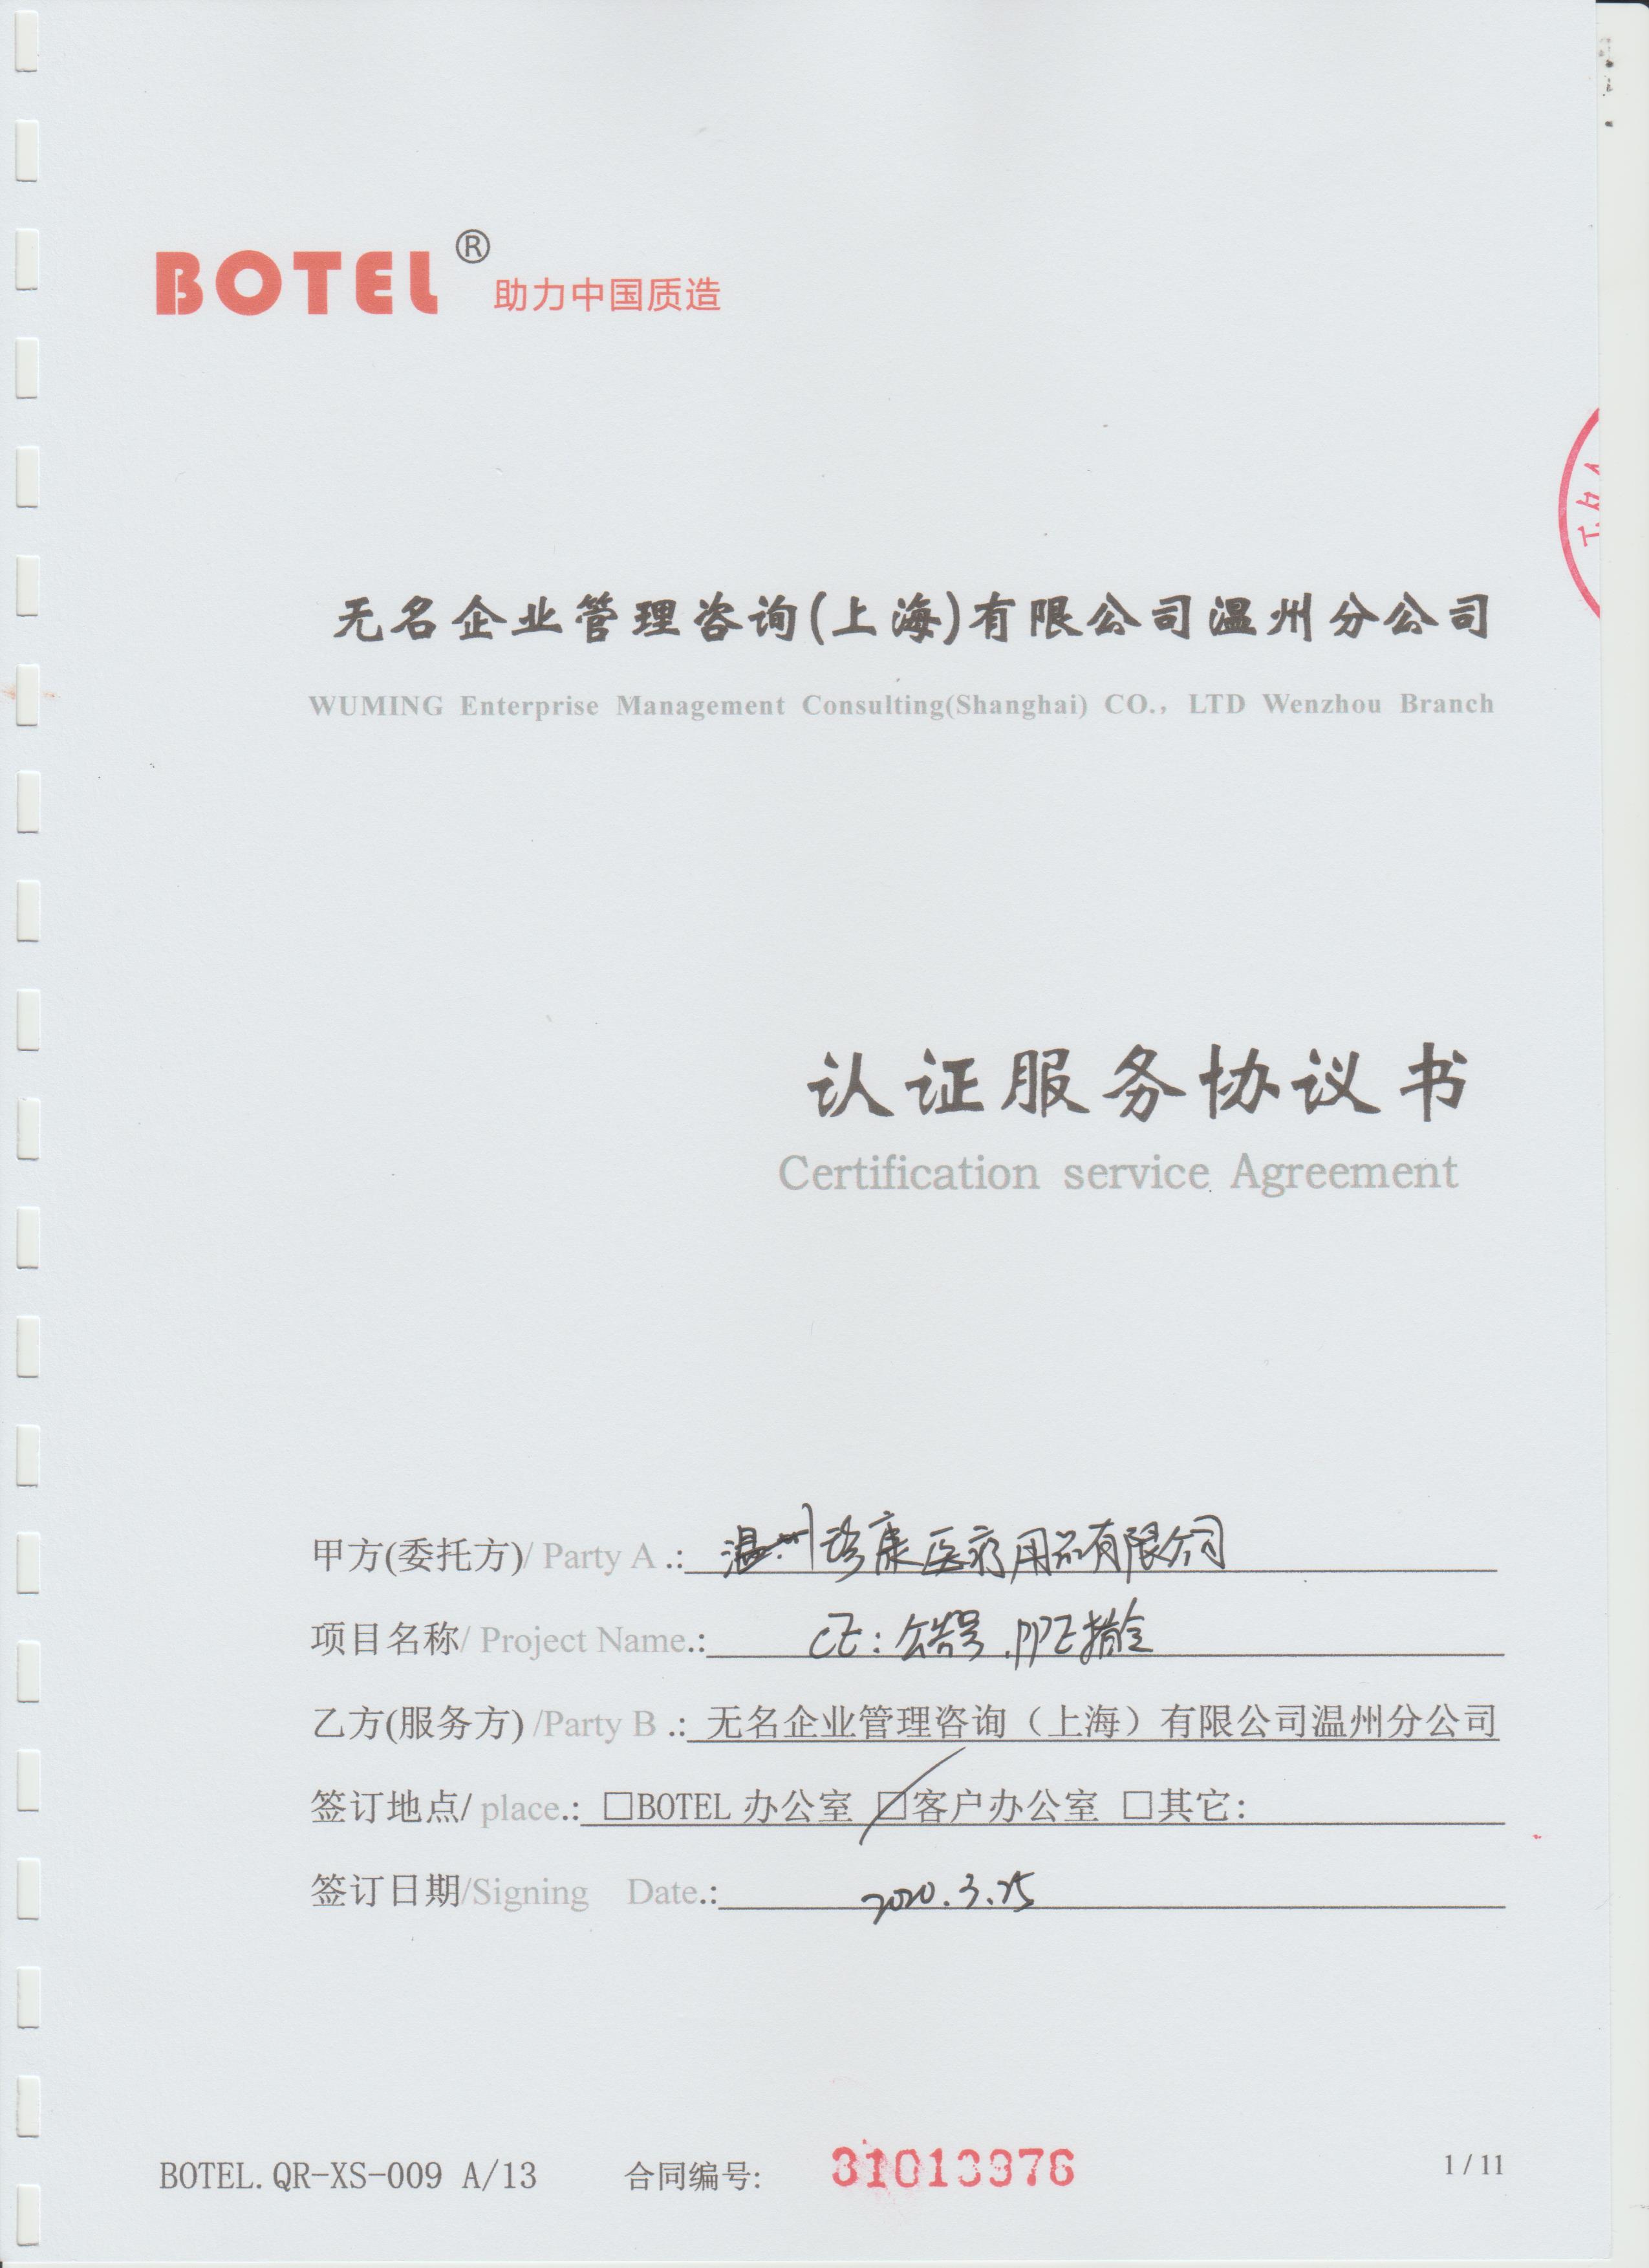 BOTEL® 助力中国质造
无名企业管理咨询(上海)有限公司温州分公司
WUMING Enterprise Management Consulting(Shanghai) CO., LTD Wenzhou Branch
认证服务协议书
Certification service Agreement
甲方(委托方)/ Party A .: 温州珍康医疗用品有限公司
项目名称/ Project Name.: CE: 公告号.PPE指令
乙方(服务方) /Party B .: 无名企业管理咨询（上海）有限公司温州分公司
签订地点/ place.: □BOTEL 办公室 ☑客户办公室 □其它:
签订日期/Signing Date.: 2020.3.25
BOTEL.QR-XS-009 A/13 合同编号: 31013376 1 / 11